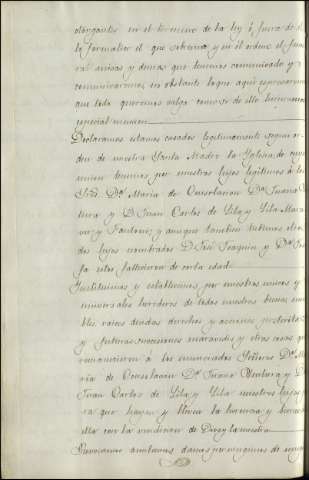 otorgantes en el termino de la ley ó fuera de el
la formalice el que sobreviva, y en el órden el fune
ral misas y demas que tenemos comunicado y
comunicaremos, no obstante lo que aqui espresaremos
que todo queremos valga como si de ello hicieramos
especial mencion
Declaramos estamos casados legitimamente segun or
den de nuestra Santa Madre la Yglesia de cuyo
union tenemos por nuestros hijos legitimos á los
Sres. Dª Maria de Consolacion Dª Juana Ven
tura y D. Juan Carlos de Lila y Lila
y aunque tambien tubimos otros
dos hijos nombrados D. José Joaquin y Dª
fa estos fallecieron de corta edad
Ynstituimos y establecemos por nuestros unicos y
universales herederos de todos nuestros bienes mue
bles, raices deudas derechos y acciones presentes
y futuras, sucesiones mayorazgos y otras cosas que
á los enunciados Señores Dª Ma
ria de Consolacion Dª Juana Ventura y D.
Juan Carlos de Lila y Lila nuestros hijos pa
ra que hayan y lleven la herencia y
ella con la bendicion de Dios y la nuestra
Revocamos anulamos damos por ningunos de ningun